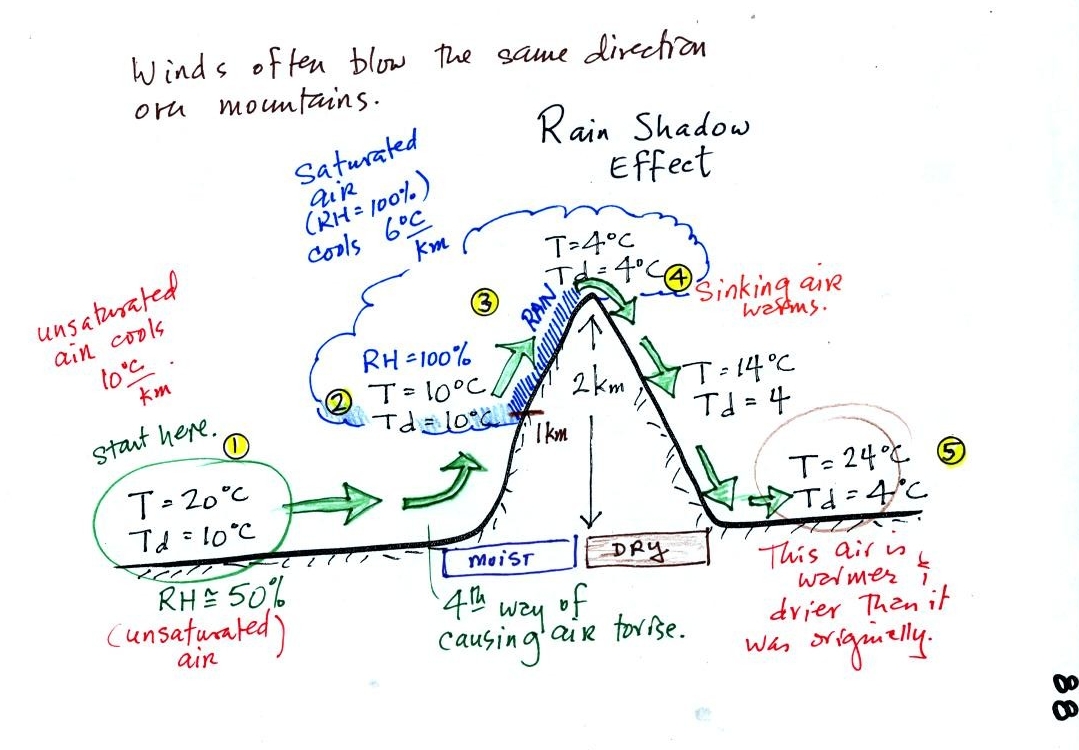 Winds often blow the same direction
over mountains.
Rain Shadow
Effect
Saturated
air
(RH=100%)
cools 6°C
km
unsaturated
air cools
10°C
km
start here. 1
T=20°C
Td=10°C
RH≅50%
(unsaturated)
air
2
RH=100%
T=10°C
Td=10°C
3
RAIN
T=4°C
Td=4°C
4
Sinking air
warms.
1km
2km
T=14°C
Td=4
T=24°C
Td=4°C
5
MOIST
DRY
4th way of
causing air to rise.
This air is
warmer &
drier than it
was originally.
88